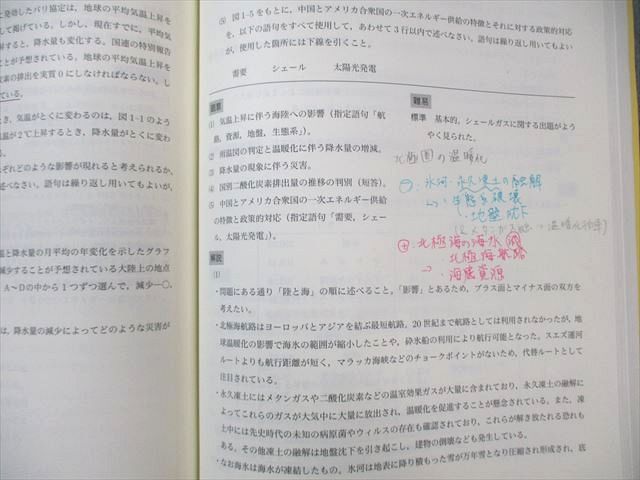 に発効したパリ協定は、地球の平均気温上昇を
して掲げている。しかし、現在すでに、平均気
すると、降水量も変化する。国連の特別報告
ことが予想されている。地球の平均気温上昇を
炭素の排出を実質0にしなければならない。し
ている。
き、気温がとくに変わるのは、図1-1のよう
気温が2℃上昇するとき、降水量がとくに変わ
る。
ぞれどのような影響が現れると考えられるか、
述べなさい。語句は繰り返し用いてもよいが、
温と降水量の月平均の年変化を示したグラフ
減少することが予想されている大陸上の地点
A～Dの中から1つずつ選んで、減少―○、
は、降水量の減少によってどのような災害が
(5) 図1-5をもとに、中国とアメリカ合衆国の一次エネルギー供給の特徴とそれに対する政策的対応
を、以下の語句をすべて使用して、あわせて3行以内で述べなさい。語句は繰り返し用いてもよい
が、使用した箇所には下線を引くこと。
需要 シェール 太陽光発電
題意
(1) 気温上昇に伴う海陸への影響（指定語句「航
路、資源、地盤、生態系」）。
(2) 雨温図の判定と温暖化に伴う降水量の増減。
(3) 降水量の現象に伴う災害。
(4) 国別二酸化炭素排出量の推移の判別（短答）。
(5) 中国とアメリカ合衆国の一次エネルギー供給
の特徴と政策的対応（指定語句「需要、シェー
ル、太陽光発電」）。
難易
標準 基本的。シェールガスに関する出題がよう
やく見られた。
北極圏の温暖化
⊖：氷河・永久凍土の融解
↳・生態系破壊
・地盤沈下
⊕：北極海の海水
・北極海航路
→・海底資源
解説
(1)
・問題にある通り「陸と海」の順に述べること。「影響」とあるため、プラス面とマイナス面の双方を
考えたい。
・北極海航路はヨーロッパとアジアを結ぶ最短航路。20世紀まで航路としては利用されなかったが、地
球温暖化の影響で海氷の範囲が縮小したことや、砕氷船の利用により航行可能となった。スエズ運河
ルートよりも航行距離が短く、マラッカ海峡などのチョークポイントがないため、代替ルートとして
注目されている。
・永久凍土にはメタンガスや二酸化炭素などの温室効果ガスが大量に含まれており、永久凍土の融解に
よってこれらのガスが大気中に大量に放出され、温暖化を促進することが懸念されている。また、凍
土中には先史時代の未知の病原菌やウィルスの存在も確認されており、これらが解き放たれる恐れも
ある。その他凍土の融解は地盤沈下を引き起こし、建物の倒壊なども発生している。
・なお海氷は海水が凍結したもの。氷河は地表に降り積もった雪が万年雪となり圧縮され形成され、底